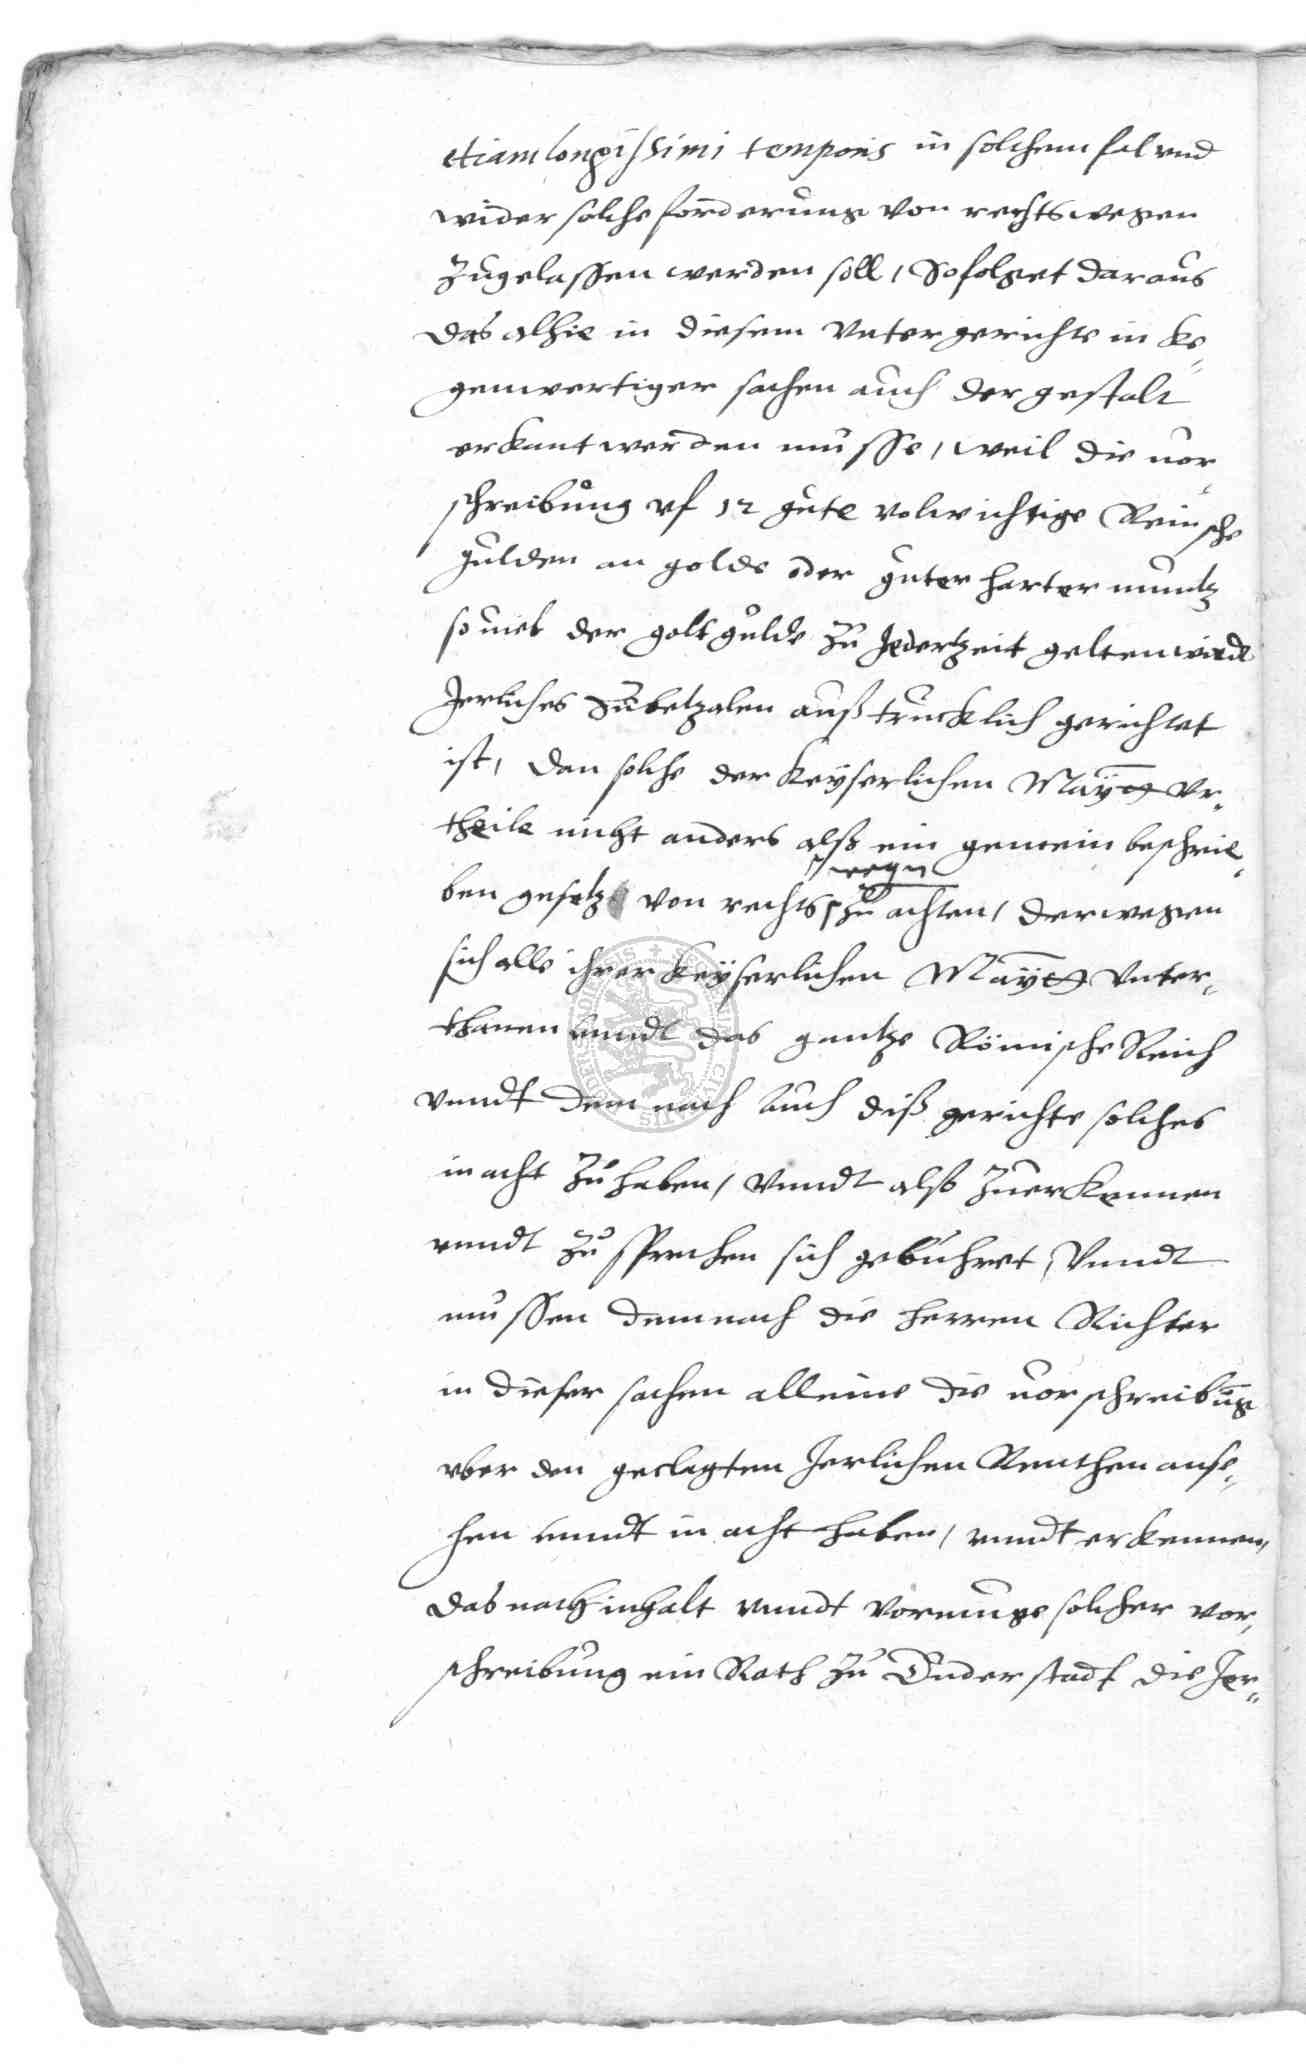 etiam longissimi temporis in solchem fal vnd
wider solche forderunge von rechtswegen
zugelassen werden soll, So folget daraus
das alhie in diesem Untergerichte in ke„
genwertiger sachen auch dergestalt
erkant werden musse, weil die vor„
schreibung vf 12 gute volwichtige Reinsche
gulden an golde oder guter harter muntz
so viel der goltgulde zu Jedertzeit gelten wirdt
Jerliches zubetzalen außtrucklich gerichtet
ist, dan solche der Keyserlichen Maytt vr„
theile nicht anders alß ein gemein beschrie„
ben gesetz von rechts wegn zu achten, derwegen
sich alle ihrer Keyserlichen Maytt vnter„
thanen vnndt das gantze Römische Reich
vnndt demnach auch diß gerichte solches
in acht zu haben, vnndt alß zuerkennen
vnndt zu sprechen sich gebühret, vnndt
mussen demnach die herren Richter
in dieser sachen alleine die vorschreibung
vber den geclagten Jerlichen Renthen anse„
hen vnndt in acht haben, vnndt erkennen,
das nach inhalt vnndt vormuge solcher vor„
schreibung ein Rath zu Duderstadt die Jer„